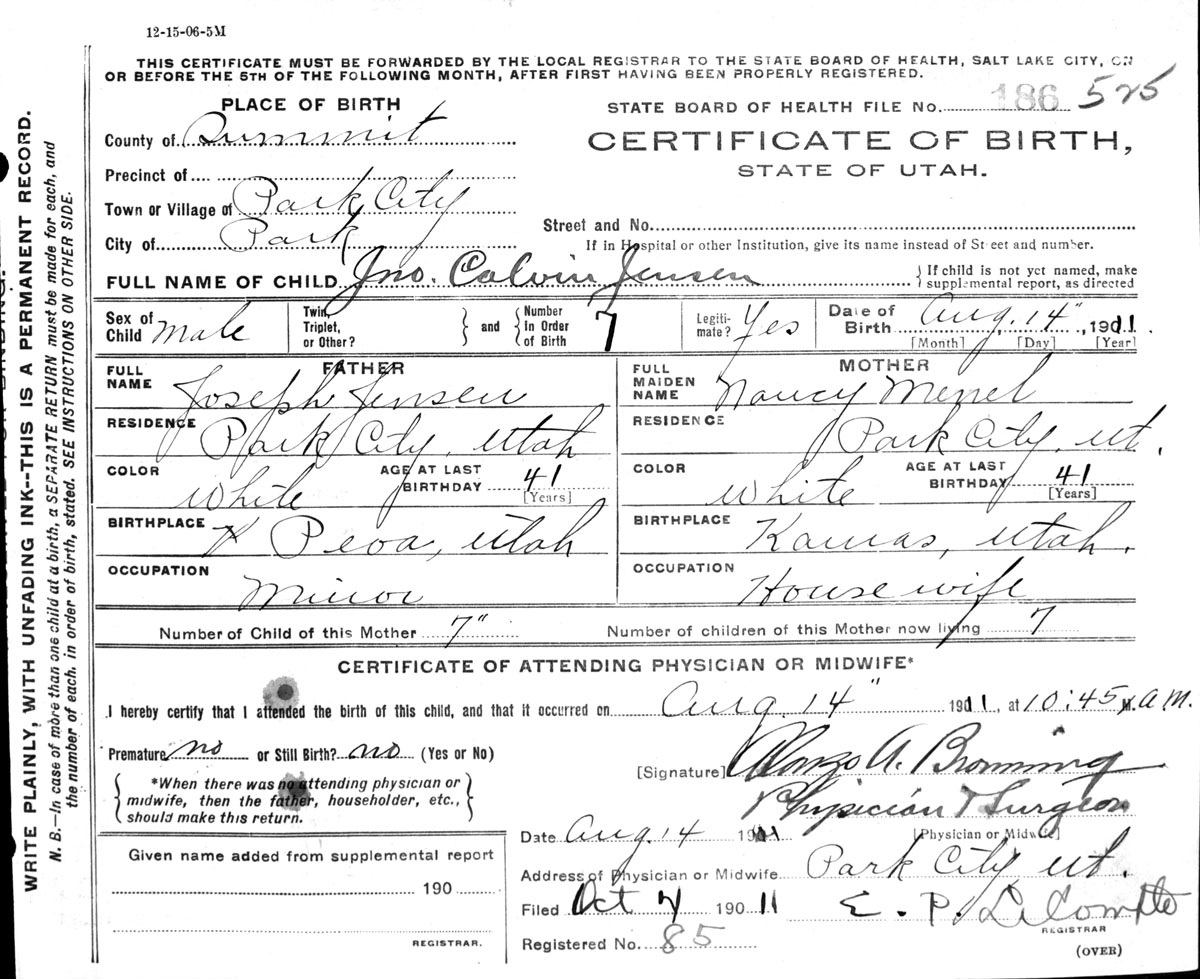 12-15-06-5M
THIS CERTIFICATE MUST BE FORWARDED BY THE LOCAL REGISTRAR TO THE STATE BOARD OF HEALTH, SALT LAKE CITY, ON
OR BEFORE THE 5TH OF THE FOLLOWING MONTH, AFTER FIRST HAVING BEEN PROPERLY REGISTERED.
WRITE PLAINLY, WITH UNFADING INK--THIS IS A PERMANENT RECORD.
N. B.—In case of more than one child at a birth, a SEPARATE RETURN must be made for each, and
the number of each, in order of birth, stated. SEE INSTRUCTIONS ON OTHER SIDE.
PLACE OF BIRTH
County of Summit
Precinct of
Town or Village of Park City
City of Park
STATE BOARD OF HEALTH FILE No. 186 525
CERTIFICATE OF BIRTH,
STATE OF UTAH.
Street and No.
If in Hospital or other Institution, give its name instead of Street and number.
FULL NAME OF CHILD Jno. Calvin Jensen
If child is not yet named, make
supplemental report, as directed
Sex of Child Male
Twin, Triplet, or Other? and Number In Order of Birth 7
Legiti- mate? Yes
Date of Birth Aug. 14", 1911.
[Month] [Day] [Year]
FATHER
FULL NAME Joseph Jensen
RESIDENCE Park City, Utah
COLOR White AGE AT LAST BIRTHDAY 41
[Years]
BIRTHPLACE Peoa, Utah
OCCUPATION Minor
MOTHER
FULL MAIDEN NAME Nancy Menel
RESIDENCE Park City, Ut.
COLOR White AGE AT LAST BIRTHDAY 41
[Years]
BIRTHPLACE Kamas, Utah.
OCCUPATION House wife
Number of Child of this Mother 7" Number of children of this Mother now living 7
CERTIFICATE OF ATTENDING PHYSICIAN OR MIDWIFE*
I hereby certify that I attended the birth of this child, and that it occurred on Aug. 14" 1911, at 10:45 A M.
Premature no or Still Birth? no (Yes or No)
*When there was no attending physician or
midwife, then the father, householder, etc.,
should make this return.
[Signature] Alonzo A. Browning
Physician & Surgeon
[Physician or Midwife]
Date Aug. 14 1911
Address of Physician or Midwife Park City Ut.
Given name added from supplemental report
190
REGISTRAR.
Filed Oct 4 190 11 E. P. LeCompte
REGISTRAR
Registered No. 85
(OVER)